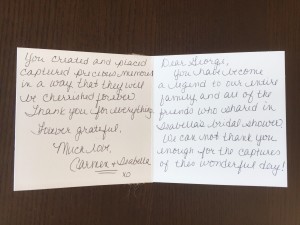 You created and placed
captured precious memories
in a way that they will
be cherished forever.
Thank you for everything.
Forever grateful,
Much love,
Carmen + Isabella
xo
Dear George,
You have become
a legend to our entire
family, and all of the
friends who shared in
Isabella's bridal shower.
We can not thank you
enough for the captures
of this wonderful day!